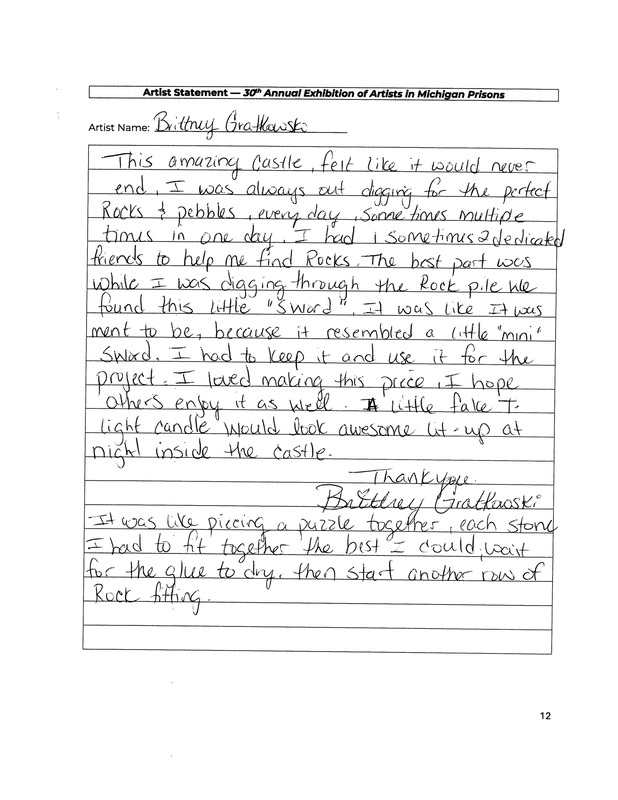 Artist Statement — 30th Annual Exhibition of Artists in Michigan Prisons
Artist Name: Brittney Gratkowski
This amazing castle, felt like it would never
end, I was always out digging for the perfect
Rocks & pebbles, every day, Sometimes multiple
times in one day. I had 1 sometimes 2 dedicated
friends to help me find Rocks. The best part was
while I was digging through the Rock pile we
found this little "Sword". It was like It was
ment to be, because it resembled a little "mini"
Sword. I had to keep it and use it for the
project. I loved making this piece, I hope
others enjoy it as well. A little fake T-
light candle would look awesome lit-up at
night inside the castle.
Thankyou.
Brittney Gratkowski
It was like piecing a puzzle together, each stone
I had to fit together the best I could, wait
for the glue to dry, then start another row of
Rock fitting.
12